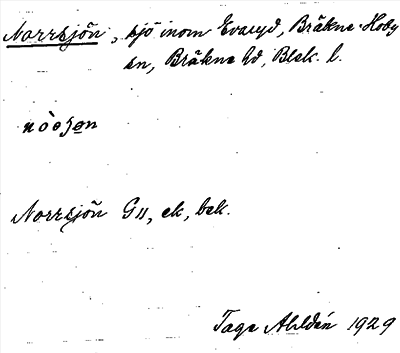 Norrsjön, sjö inom Evaryd, Bräkne-Hoby
sn, Bräkne hd, Blek. l.
Norrsjön G11, ek, bek.
Tage Ahldén 1929